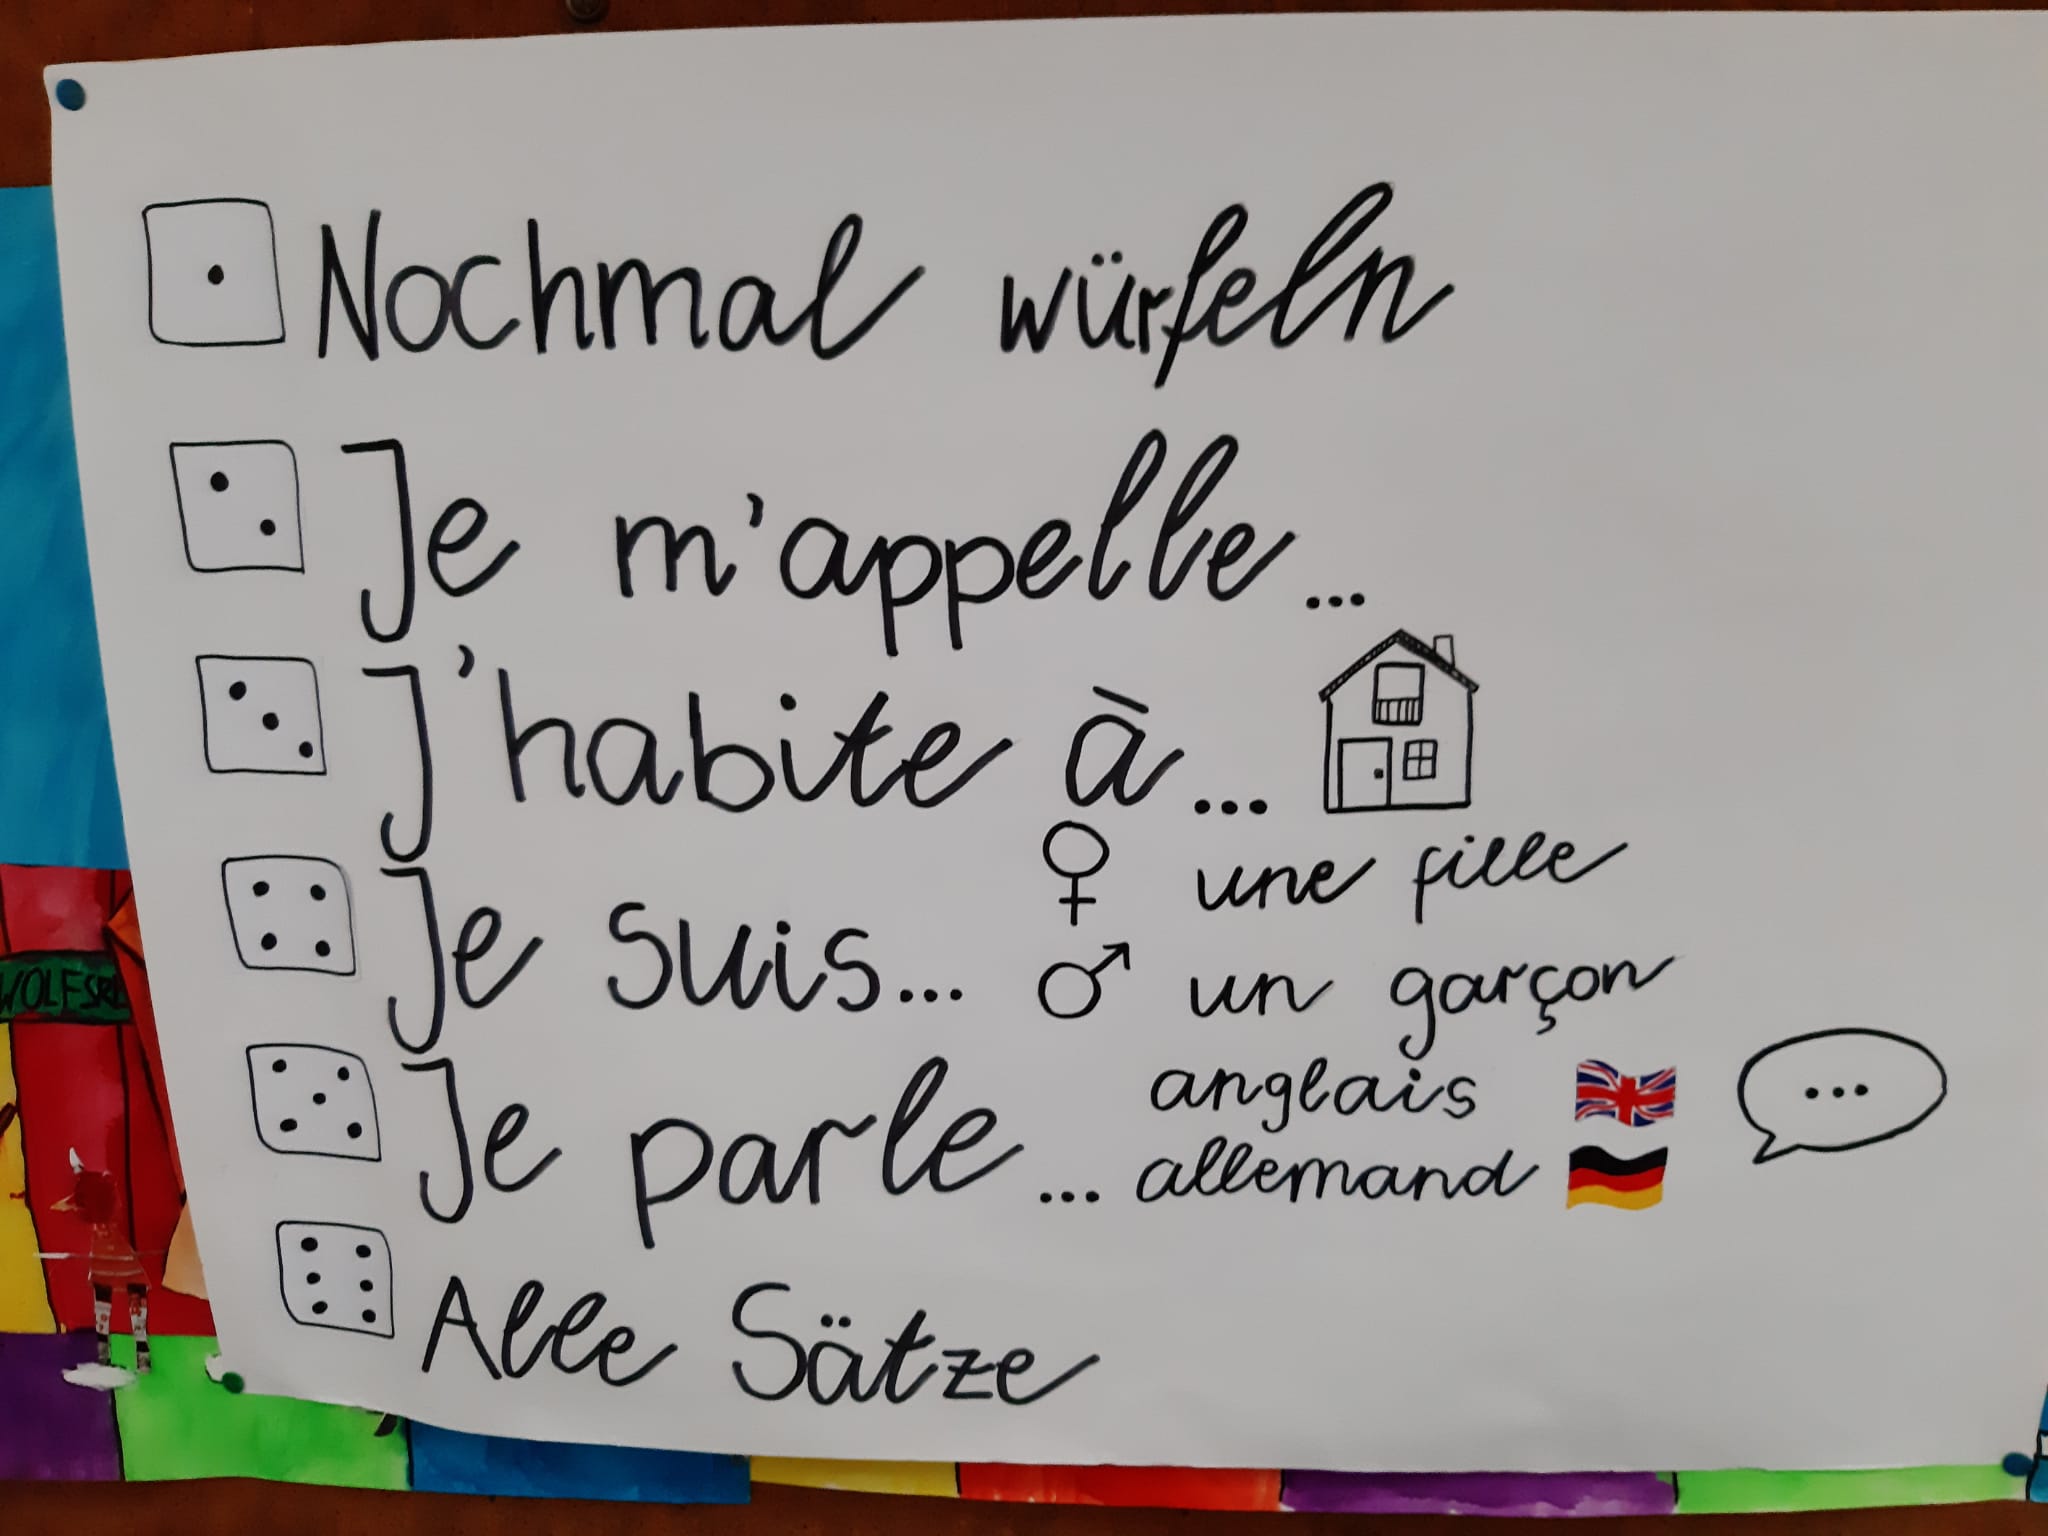 Nochmal würfeln
Je m'appelle...
J'habite à...
Je suis... une fille
un garçon
Je parle... anglais
allemand
...
Alle Sätze